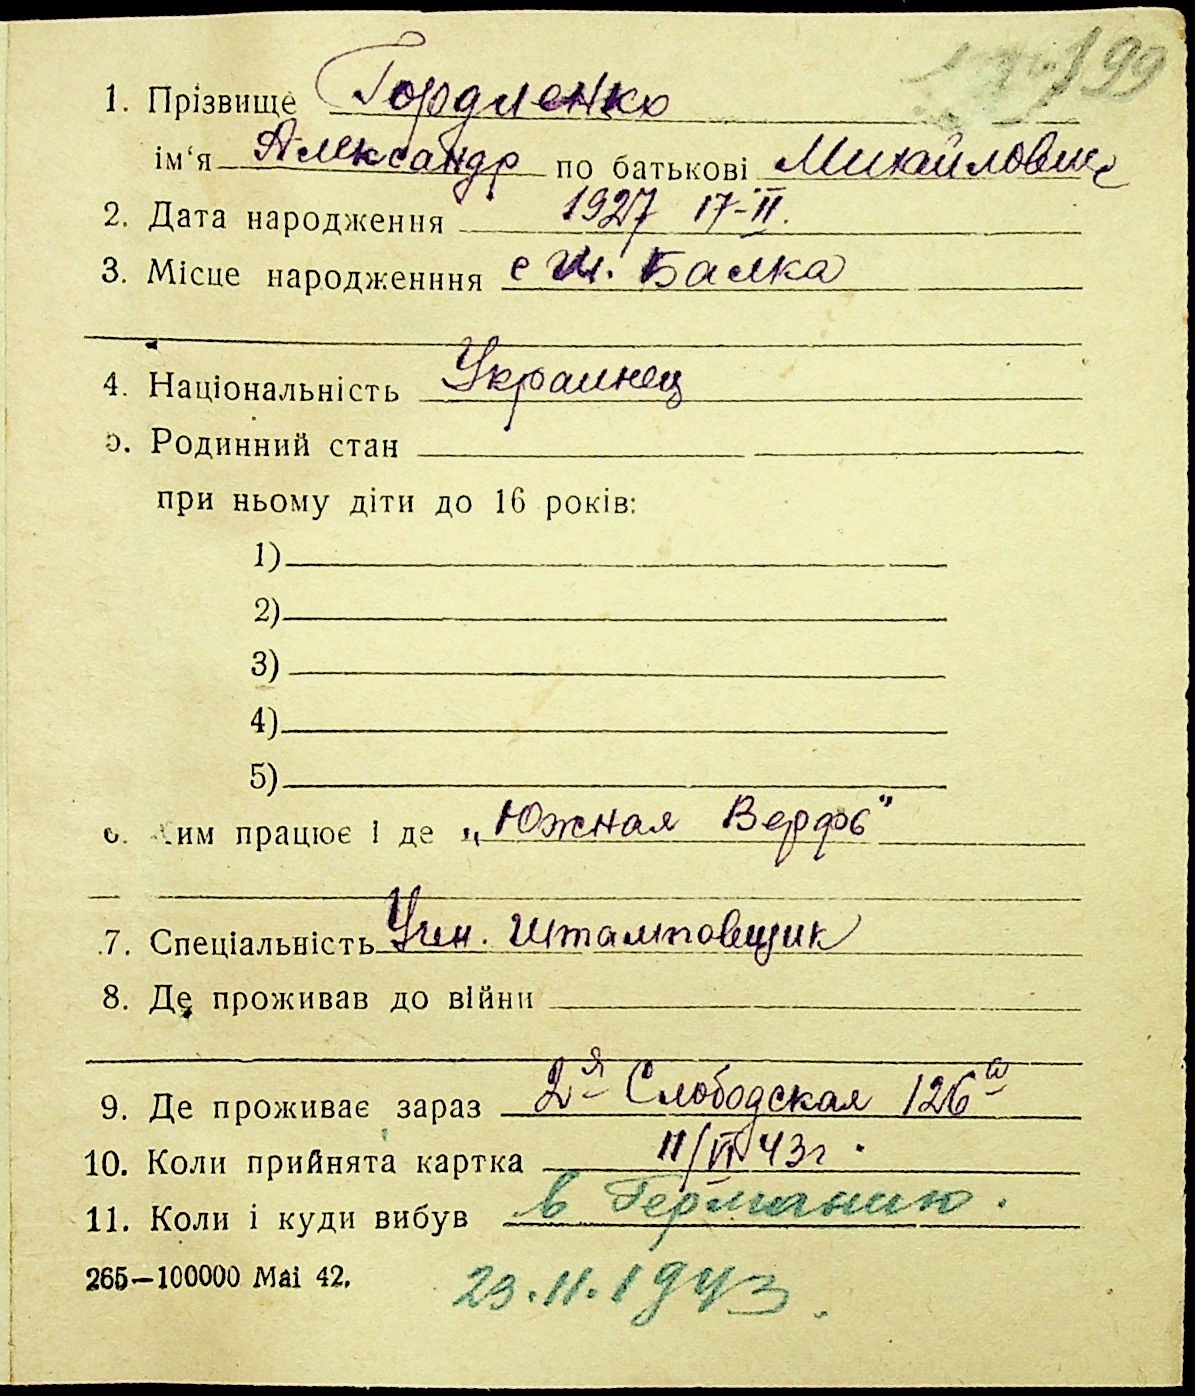 199
1. Прізвище Гордиенко
ім‘я Александр по батькові Михайлович
2. Дата народження 1927 17-II.
3. Місце народженння с Ш. Балка
4. Національність Украинец
5. Родинний стан
при ньому діти до 16 років:
1)
2)
3)
4)
5)
6. Ким працює і де „Южная Верфь"
7. Спеціальність Учен. Штамповщик
8. Де проживав до війни
9. Де проживає зараз 2я Слободская 126а
10. Коли прийнята картка 11/VI 43г.
11. Коли і куди вибув в Германию.
265—100000 Mai 42.
23.11.1943.